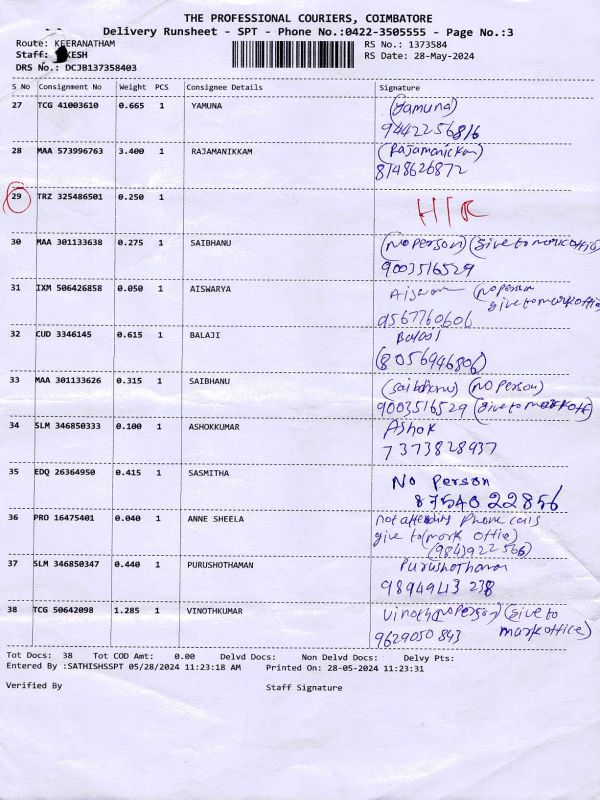 THE PROFESSIONAL COURIERS, COIMBATORE
Delivery Runsheet - SPT - Phone No.:0422-3505555 - Page No.:3
Route: KEERANATHAM RS No.: 1373584
Staff: KESH RS Date: 28-May-2024
DRS No.: DCJB137358403
S No Consignment No Weight PCS Consignee Details Signature
27 TCG 41003610 0.665 1 YAMUNA (Yamuna)
9442256816
28 MAA 573996763 3.400 1 RAJAMANIKKAM (Rajamanickam)
8148626872
29 TRZ 325486501 0.250 1
30 MAA 301133638 0.275 1 SAIBHANU (No person) (give to mark office)
9003516529
31 IXM 506426858 0.050 1 AISWARYA (no person
give to mark office
9567760606
32 CUD 3346145 0.615 1 BALAJI Balaji
(8056946806)
33 MAA 301133626 0.315 1 SAIBHANU (Saibhanu) (NO person)
9003516529 (give to mark off)
34 SLM 346850333 0.100 1 ASHOKKUMAR Ashok
7373828937
35 EDQ 26364950 0.415 1 SASMITHA No Person
8754022856
36 PRO 16475401 0.040 1 ANNE SHEELA not attending Phone calls
give to (mark office)
37 SLM 346850347 0.440 1 PURUSHOTHAMAN Purushothaman
9894943238
38 TCG 50642098 1.285 1 VINOTHKUMAR Vinoth (no person) (give to
9629050843 mark office)
Tot Docs: 38 Tot COD Amt: 0.00 Delvd Docs: Non Delvd Docs: Delvy Pts:
Entered By :SATHISHSSPT 05/28/2024 11:23:18 AM Printed On: 28-05-2024 11:23:31
Verified By Staff Signature